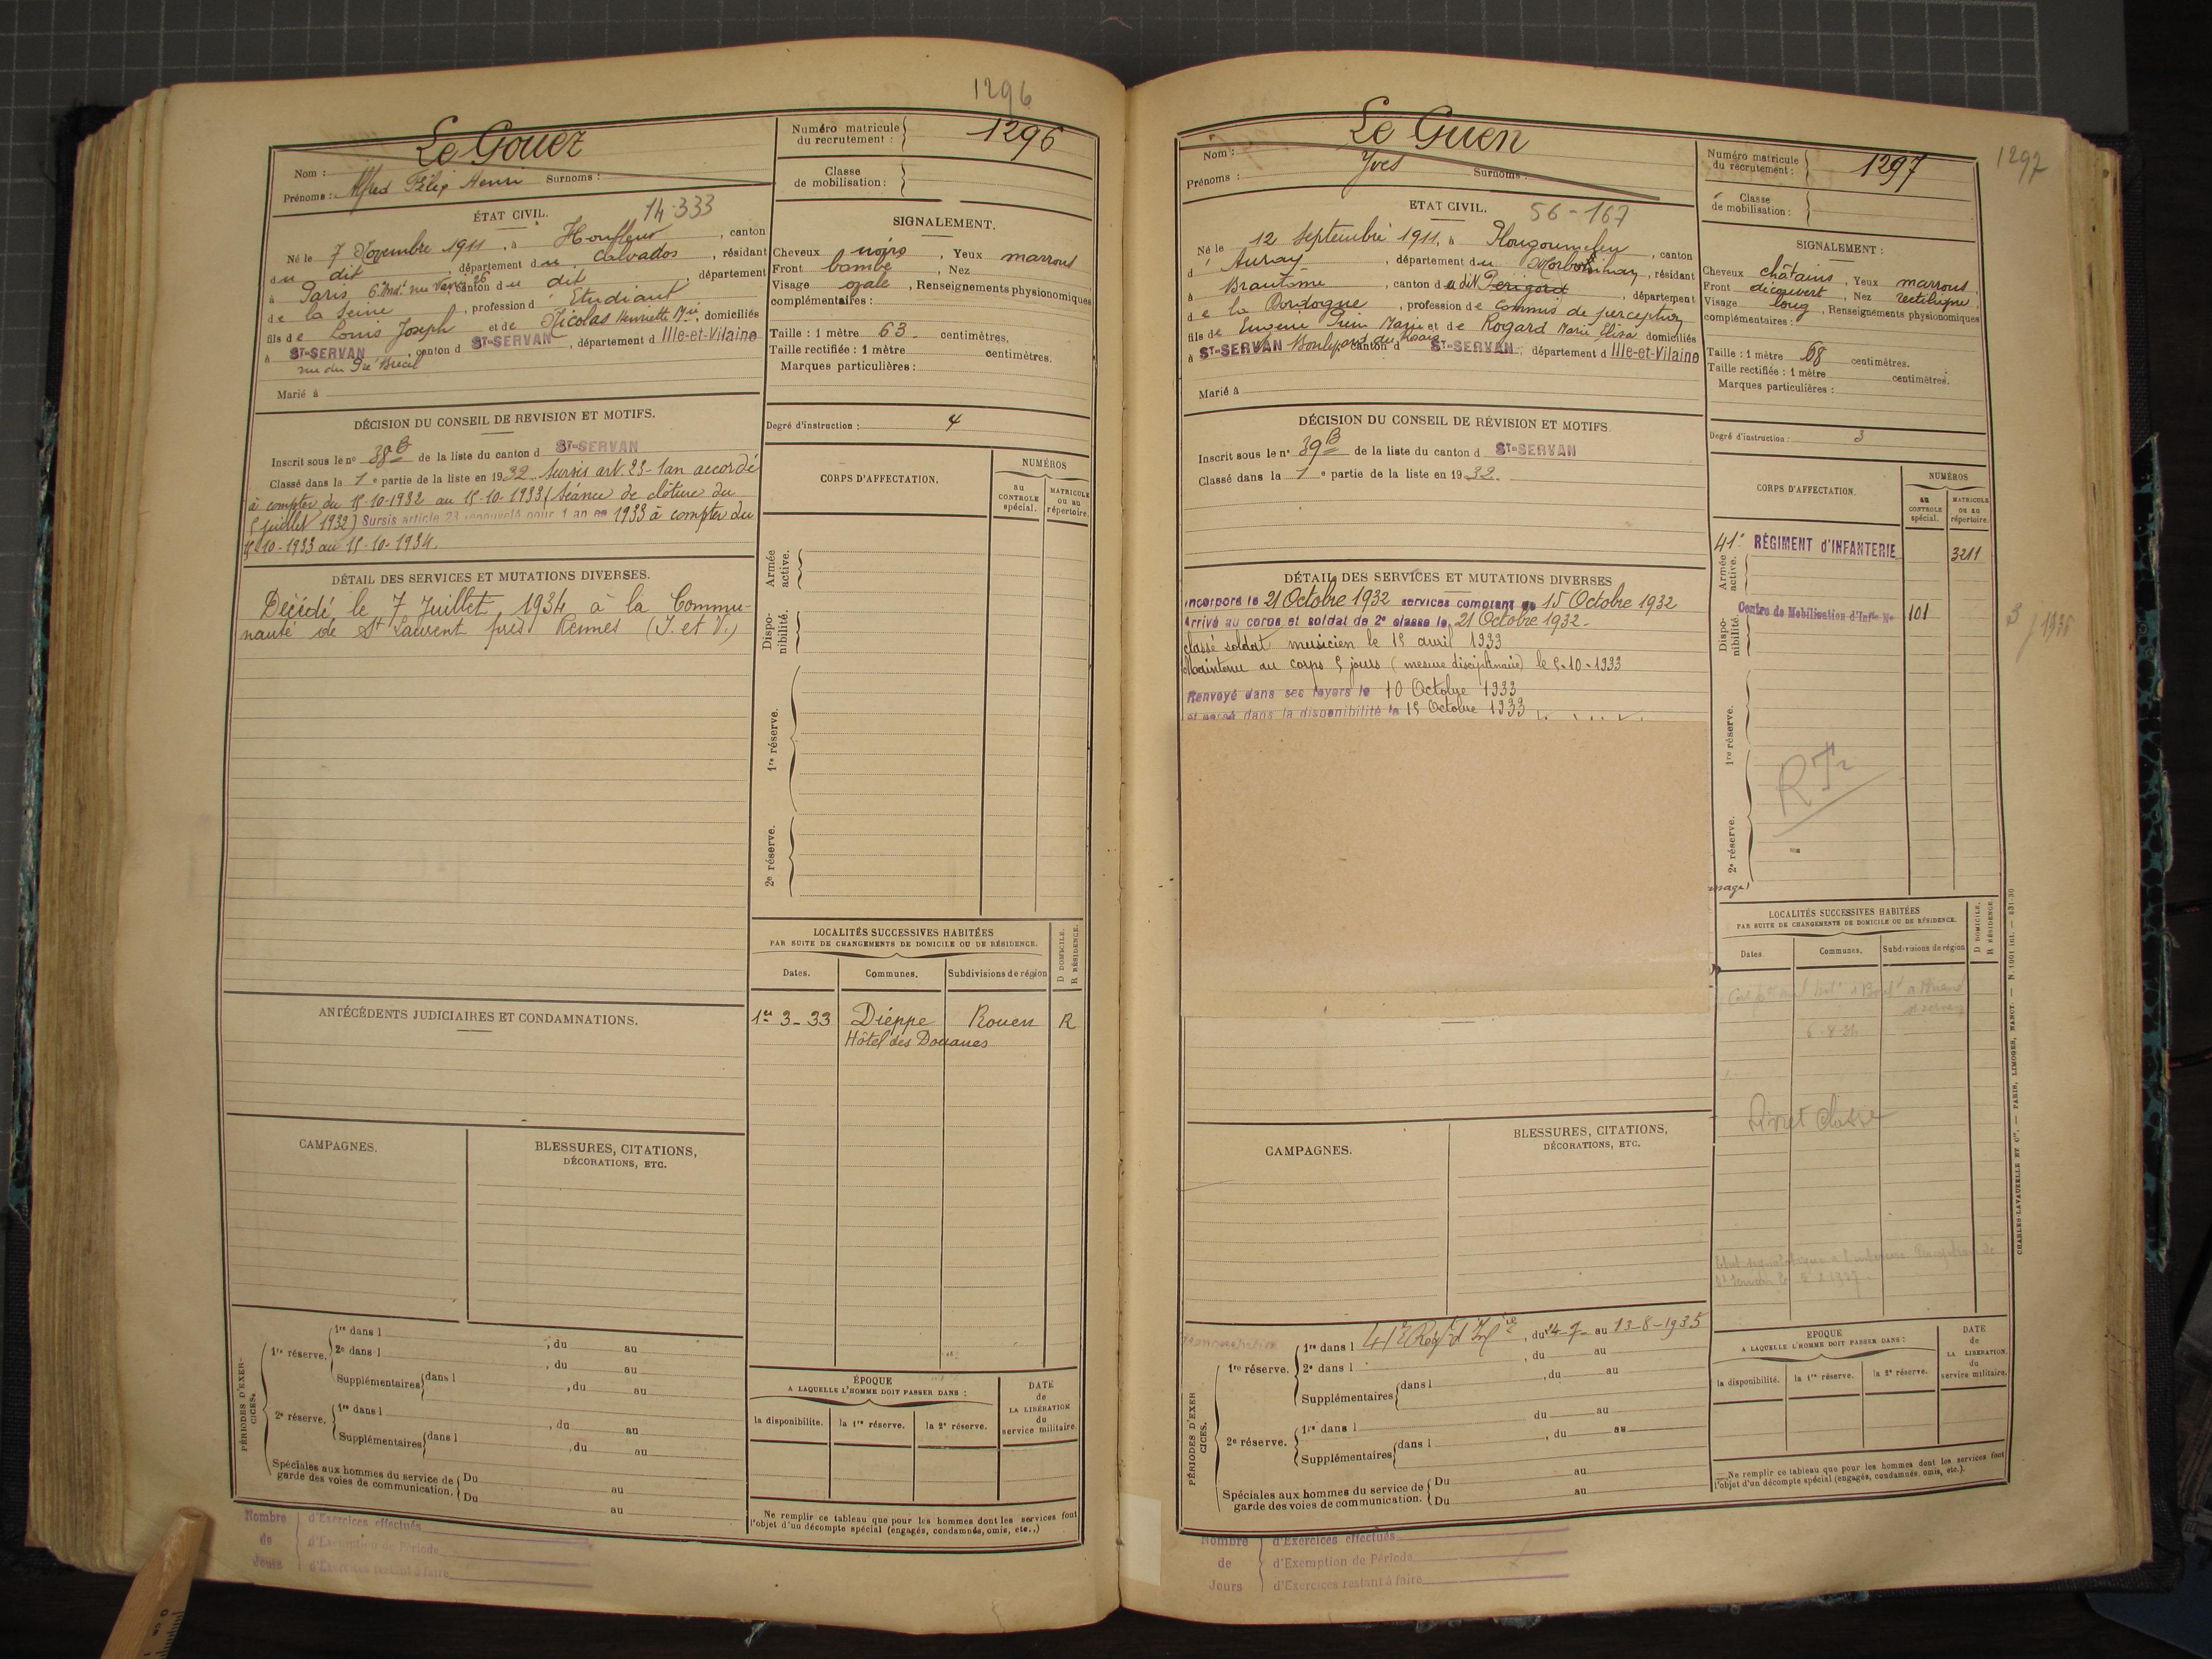 1296
Le Gouez
Nom :
Prénoms : Alfred Félix Henri Surnoms :
Numéro matricule du recrutement : 1296
Classe de mobilisation :
ÉTAT CIVIL.
14-333
Né le 7 Novembre 1911, à Honfleur, canton
du dit, département du Calvados, résidant
à Paris, 6e Arrt rue 26, canton du dit, département
de la Seine, profession d' Etudiant
fils de Louis Joseph et de Nicolas Henriette Mie, domiciliés
à ST-SERVAN, canton d ST-SERVAN, département d Ille-et-Vilaine
rue du Pré Brécel
Marié à
SIGNALEMENT.
Cheveux noirs, Yeux marrons
Front bombé, Nez
Visage ovale, Renseignements physionomiques
complémentaires :
Taille : 1 mètre 63 centimètres.
Taille rectifiée : 1 mètre centimètres.
Marques particulières :
Degré d'instruction : 4
DÉCISION DU CONSEIL DE REVISION ET MOTIFS.
Inscrit sous le no 38B de la liste du canton d ST-SERVAN
Classé dans la 1e partie de la liste en 1932. Sursis art. 23 - 1 an accordé
à compter du 15-10-1932 au 15-10-1933 (séance de clôture du
5 juillet 1932) Sursis article 23 renouvelé pour 1 an en 1933 à compter du
15-10-1933 au 15-10-1934.
DÉTAIL DES SERVICES ET MUTATIONS DIVERSES.
Décédé le 7 Juillet 1934 à la Commu-
nauté de St Laurent près Rennes (I. et V.)
CORPS D'AFFECTATION.
NUMÉROS
AU CONTROLE spécial.
MATRICULE OU AU répertoire.
Armée active.
Disponibilité.
1re réserve.
2e réserve.
LOCALITÉS SUCCESSIVES HABITÉES
PAR SUITE DE CHANGEMENTS DE DOMICILE OU DE RÉSIDENCE.
D DOMICILE.
R RÉSIDENCE.
Dates. Communes. Subdivisions de région
1er 3-33 Dieppe Rouen R
Hôtel des Douanes
ANTÉCÉDENTS JUDICIAIRES ET CONDAMNATIONS.
CAMPAGNES.
BLESSURES, CITATIONS,
DÉCORATIONS, ETC.
PÉRIODES D'EXERCICES.
1re réserve. 1re dans l , du au
2e dans l , du au
Supplémentaires dans l , du au
2e réserve. 1re dans l , du au
Supplémentaires dans l , du au
Spéciales aux hommes du service de garde des voies de communication. Du au
Du au
ÉPOQUE
A LAQUELLE L'HOMME DOIT PASSER DANS :
la disponibilité. la 1re réserve. la 2e réserve.
DATE de LA LIBÉRATION du service militaire.
Ne remplir ce tableau que pour les hommes dont les services font
l'objet d'un décompte spécial (engagés, condamnés, omis, etc.,)
Nombre de Jours
d'Exercices effectués
d'Exemption de Période
d'Exercices restant à faire
Le Guen
Nom :
Prénoms : Yves Surnoms :
Numéro matricule du recrutement : 1297
1297
Classe de mobilisation :
ETAT CIVIL.
56-167
Né le 12 Septembre 1911, à Plougoumelen, canton
d' Auray, département du Morbihan, résidant
à Brantôme, canton du dit Périgord, département
de la Dordogne, profession de commis de perception
fils de Eugène Marie et de Rogard Marie Elisa domiciliés
à ST-SERVAN Boulevard du Rosais, canton d ST-SERVAN, département d Ille-et-Vilaine
Marié à
SIGNALEMENT :
Cheveux châtains, Yeux marrons,
Front découvert, Nez rectiligne,
Visage long, Renseignements physionomiques
complémentaires :
Taille : 1 mètre 68 centimètres.
Taille rectifiée : 1 mètre centimètres.
Marques particulières :
Degré d'instruction : 3
DÉCISION DU CONSEIL DE RÉVISION ET MOTIFS.
Inscrit sous le no 39B de la liste du canton d ST-SERVAN
Classé dans la 1e partie de la liste en 1932.
DÉTAIL DES SERVICES ET MUTATIONS DIVERSES
Incorporé le 21 Octobre 1932 services comptant du 15 Octobre 1932
Arrivé au corps et soldat de 2e classe le 21 Octobre 1932.
classé soldat musicien le 15 avril 1933
Maintenu au corps 5 jours (mesure disciplinaire) le 5-10-1933
Renvoyé dans ses foyers le 10 Octobre 1933
et passé dans la disponibilité le 15 Octobre 1933
CORPS D'AFFECTATION.
NUMÉROS
au CONTROLE spécial.
MATRICULE OU AU répertoire.
41e RÉGIMENT d'INFANTERIE 3211
Armée active.
Centre de Mobilisation d'Inf"ie No 101
Disponibilité.
1re réserve.
RT
2e réserve.
LOCALITÉS SUCCESSIVES HABITÉES
PAR SUITE DE CHANGEMENTS DE DOMICILE OU DE RÉSIDENCE.
D DOMICILE.
R RÉSIDENCE.
Dates. Communes. Subdivisions de région
Livret classé
CAMPAGNES.
BLESSURES, CITATIONS,
DÉCORATIONS, ETC.
PÉRIODES D'EXERCICES.
1re réserve. 1re dans l 41e Régt d'Infie, du 24-7- au 13-8-1935
2e dans l , du au
Supplémentaires dans l , du au
2e réserve. 1re dans l du au
Supplémentaires dans l , du au
Spéciales aux hommes du service de garde des voies de communication. Du au
Du au
EPOQUE
A LAQUELLE L'HOMME DOIT PASSER DANS :
la disponibilité. la 1re réserve. la 2e réserve.
DATE de LA LIBÉRATION. du service militaire.
Ne remplir ce tableau que pour les hommes dont les services font
l'objet d'un décompte spécial (engagés, condamnés, omis, etc.).
CHARLES-LAVAUZELLE ET Cie. — PARIS, LIMOGES, NANCY. — N. 1001 int. — 831-30
Nombre de Jours
d'Exercices effectués
d'Exemption de Période
d'Exercices restant à faire